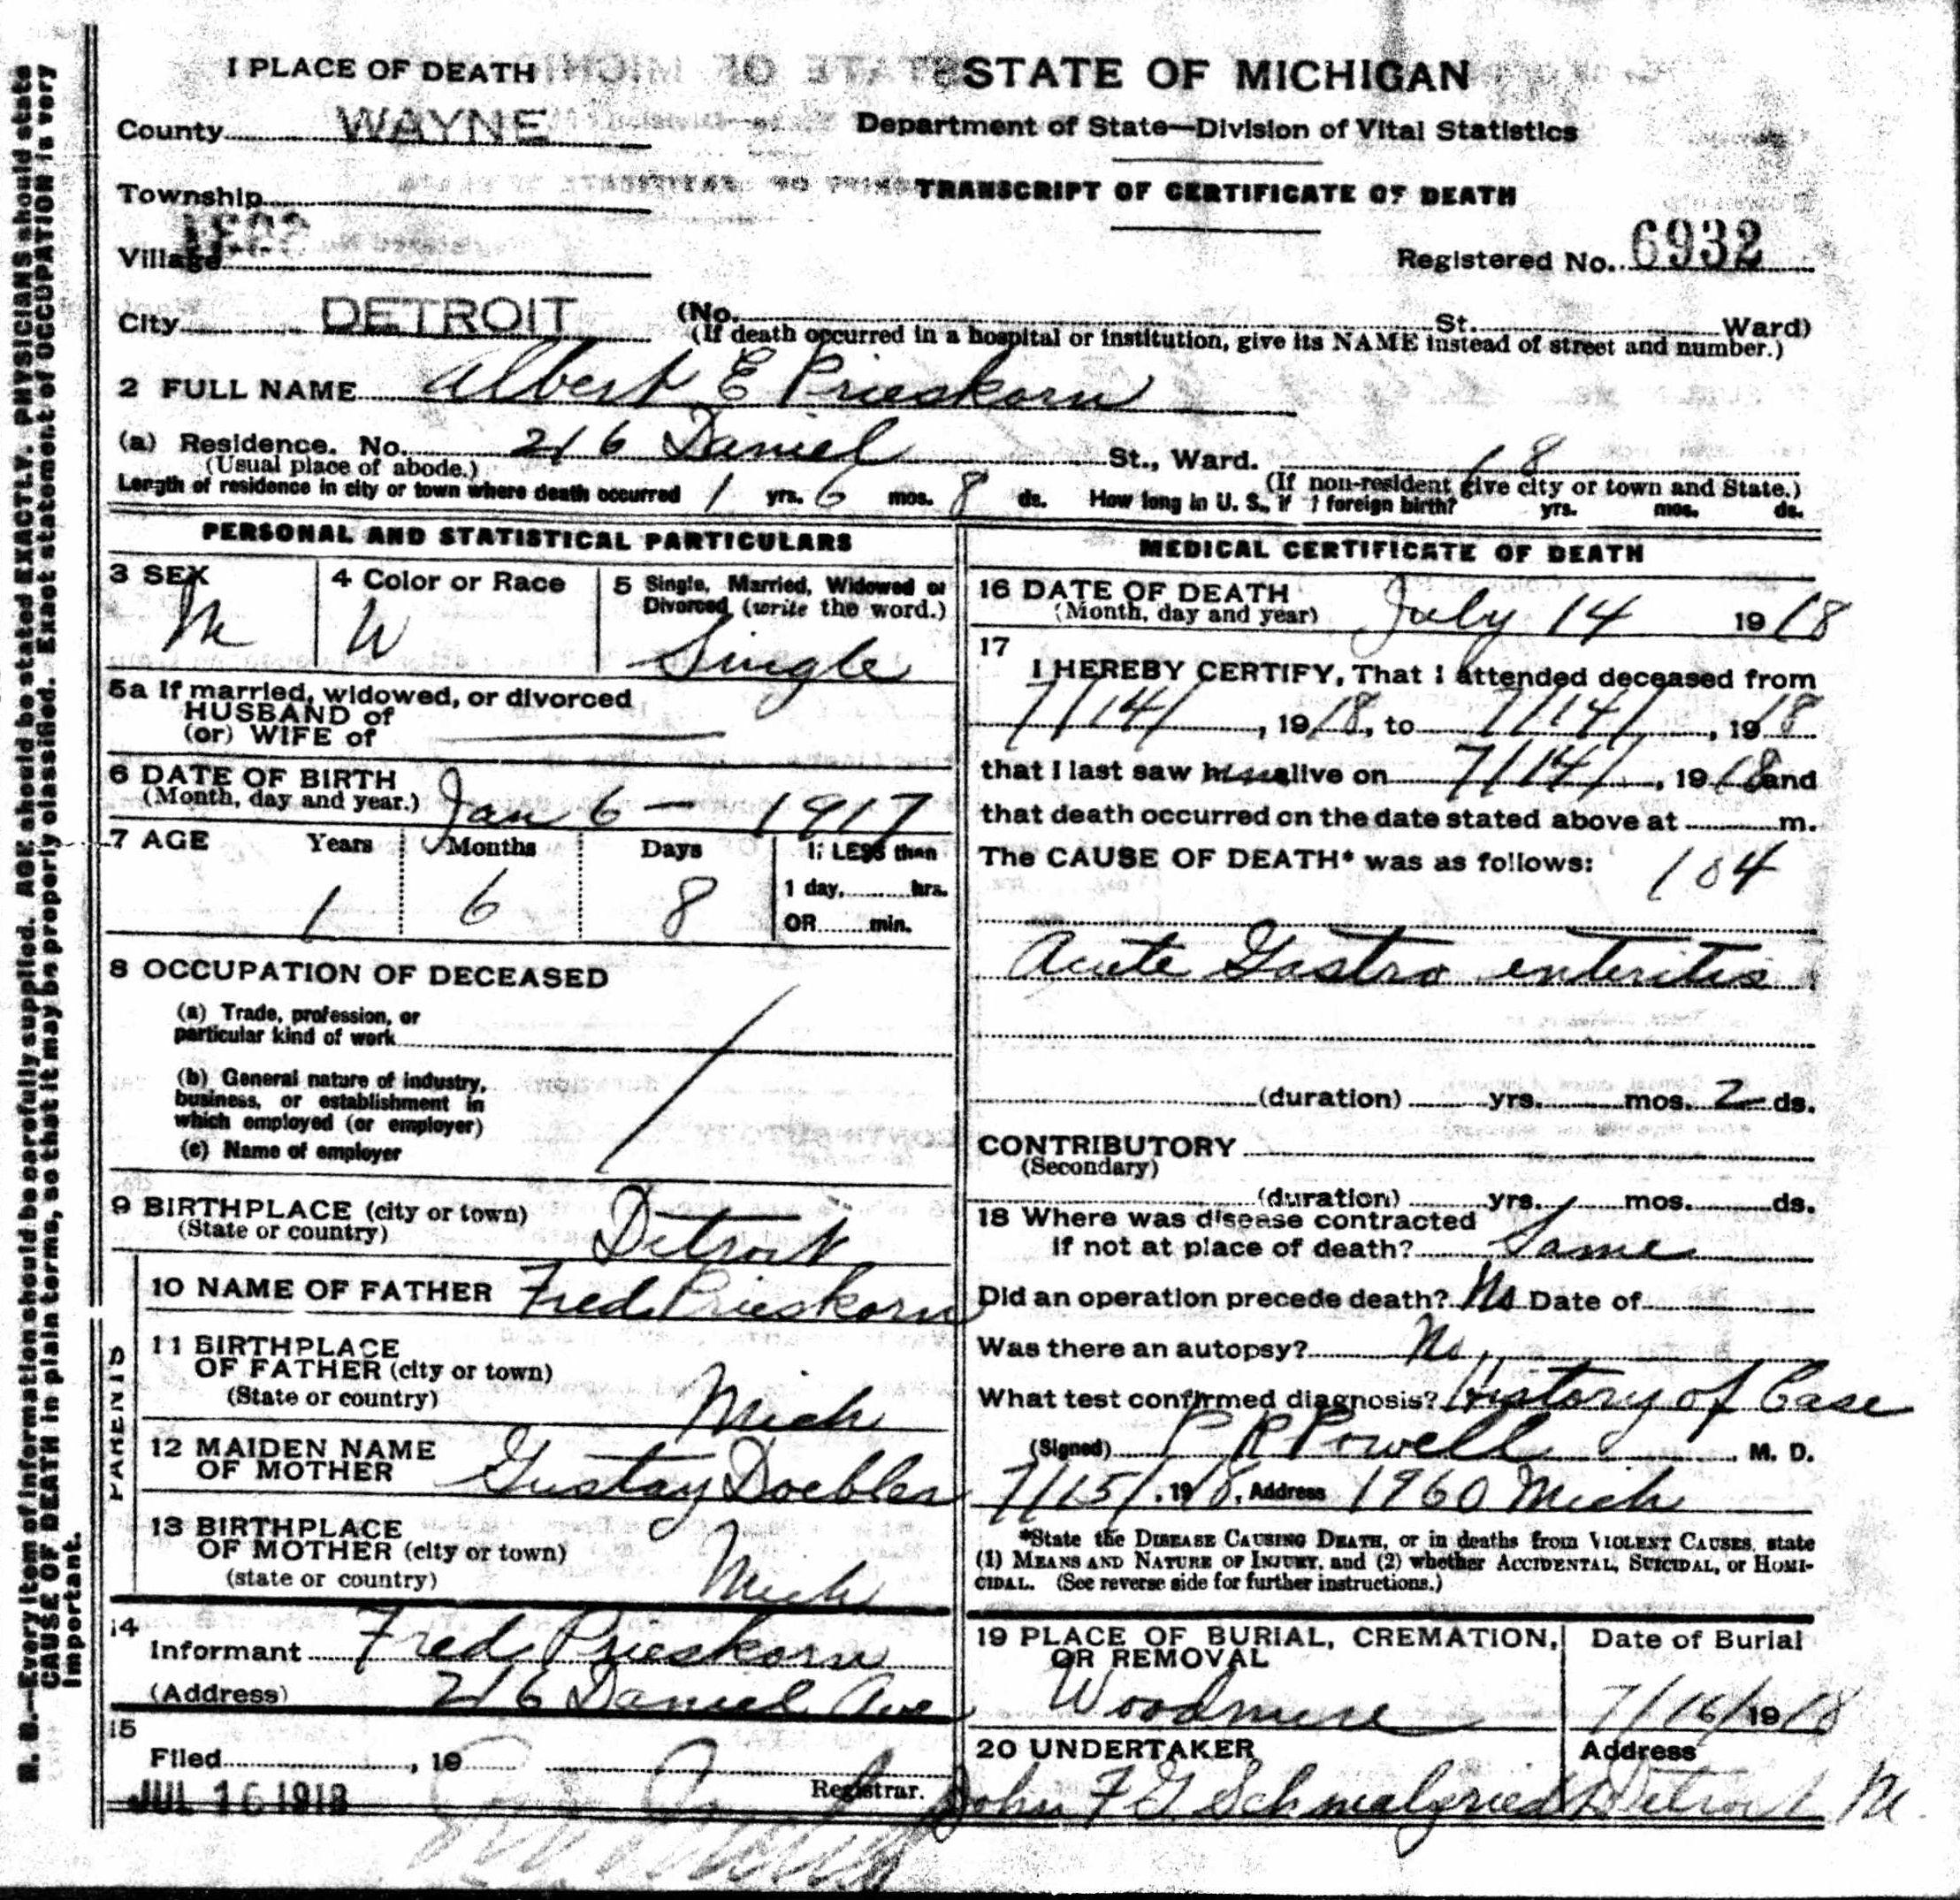 1 PLACE OF DEATH
STATE OF MICHIGAN
County WAYNE
Department of State—Division of Vital Statistics
Township
TRANSCRIPT OF CERTIFICATE OF DEATH
Village
Registered No. 6932
City DETROIT (No. St. Ward)
(If death occurred in a hospital or institution, give its NAME instead of street and number.)
2 FULL NAME Albert E Prieskorn
(a) Residence. No. 216 Daniel St., Ward. 18
(Usual place of abode.) (If non-resident give city or town and State.)
Length of residence in city or town where death occurred 1 yrs. 6 mos. 8 ds. How long in U. S., if of foreign birth? yrs. mos. ds.
PERSONAL AND STATISTICAL PARTICULARS
3 SEX 4 Color or Race 5 Single, Married, Widowed or
Divorced, (write the word.)
M W Single
5a If married, widowed, or divorced
HUSBAND of
(or) WIFE of
6 DATE OF BIRTH
(Month, day and year.) Jan 6 - 1917
7 AGE Years Months Days If LESS than
1 day, hrs.
1 6 8
OR min.
8 OCCUPATION OF DECEASED
(a) Trade, profession, or
particular kind of work
(b) General nature of industry,
business, or establishment in
which employed (or employer)
(c) Name of employer
9 BIRTHPLACE (city or town)
(State or country) Detroit
PARENTS
10 NAME OF FATHER Fred Prieskorn
11 BIRTHPLACE
OF FATHER (city or town)
(State or country) Mich
12 MAIDEN NAME
OF MOTHER Gustay Doebler
13 BIRTHPLACE
OF MOTHER (city or town)
(state or country) Mich
14
Informant Fred Prieskorn
(Address) 216 Daniel Ave
15
Filed , 19
Registrar.
JUL 16 1918
MEDICAL CERTIFICATE OF DEATH
16 DATE OF DEATH
(Month, day and year) July 14 1918
17
I HEREBY CERTIFY, That I attended deceased from
7/14/, 1918, to 7/14/, 1918
that I last saw him alive on 7/14/, 1918 and
that death occurred on the date stated above at m.
The CAUSE OF DEATH* was as follows: 104
Acute Gastro enteritis
(duration) yrs. mos. 2 ds.
CONTRIBUTORY
(Secondary)
(duration) yrs. mos. ds.
18 Where was disease contracted
if not at place of death? Same
Did an operation precede death? No Date of
Was there an autopsy? No
What test confirmed diagnosis? History of Case
(Signed) P R Powell M. D.
7/15/, 1918, Address 1960 Mich
*State the DISEASE CAUSING DEATH, or in deaths from VIOLENT CAUSES, state
(1) MEANS AND NATURE OF INJURY, and (2) whether ACCIDENTAL, SUICIDAL, or HOMI-
CIDAL. (See reverse side for further instructions.)
19 PLACE OF BURIAL, CREMATION,
OR REMOVAL
Woodmere
Date of Burial
7/16/1918
20 UNDERTAKER Address
John F G Schmalzriedt Detroit M
N. B.—Every item of information should be carefully supplied. AGE should be stated EXACTLY. PHYSICIANS should state
CAUSE OF DEATH in plain terms, so that it may be properly classified. Exact statement of OCCUPATION is very
important.